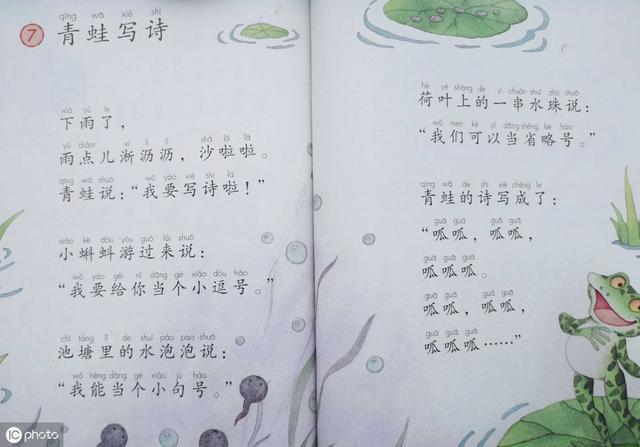 qīng wā xiě shī
7 青蛙写诗
xià yǔ le
下雨了，
yǔ diǎnr xī lì lì shā lā lā
雨点儿淅沥沥，沙啦啦。
qīng wā shuō wǒ yào xiě shī la
青蛙说：“我要写诗啦！”
xiǎo kē dǒu yóu guò lái shuō
小蝌蚪游过来说：
wǒ yào gěi nǐ dāng gè xiǎo dòu hào
“我要给你当个小逗号。”
chí táng lǐ de shuǐ pào pao shuō
池塘里的水泡泡说：
wǒ néng dāng gè xiǎo jù hào
“我能当个小句号。”
hé yè shàng de yí chuàn shuǐ zhū shuō
荷叶上的一串水珠说：
wǒ men kě yǐ dāng shěng lüè hào
“我们可以当省略号。”
qīng wā de shī xiě chéng le
青蛙的诗写成了：
guā guā guā guā
“呱呱，呱呱，
guā guā guā
呱呱呱。
guā guā guā guā
呱呱，呱呱，
guā guā guā
呱呱呱……”
IC photo